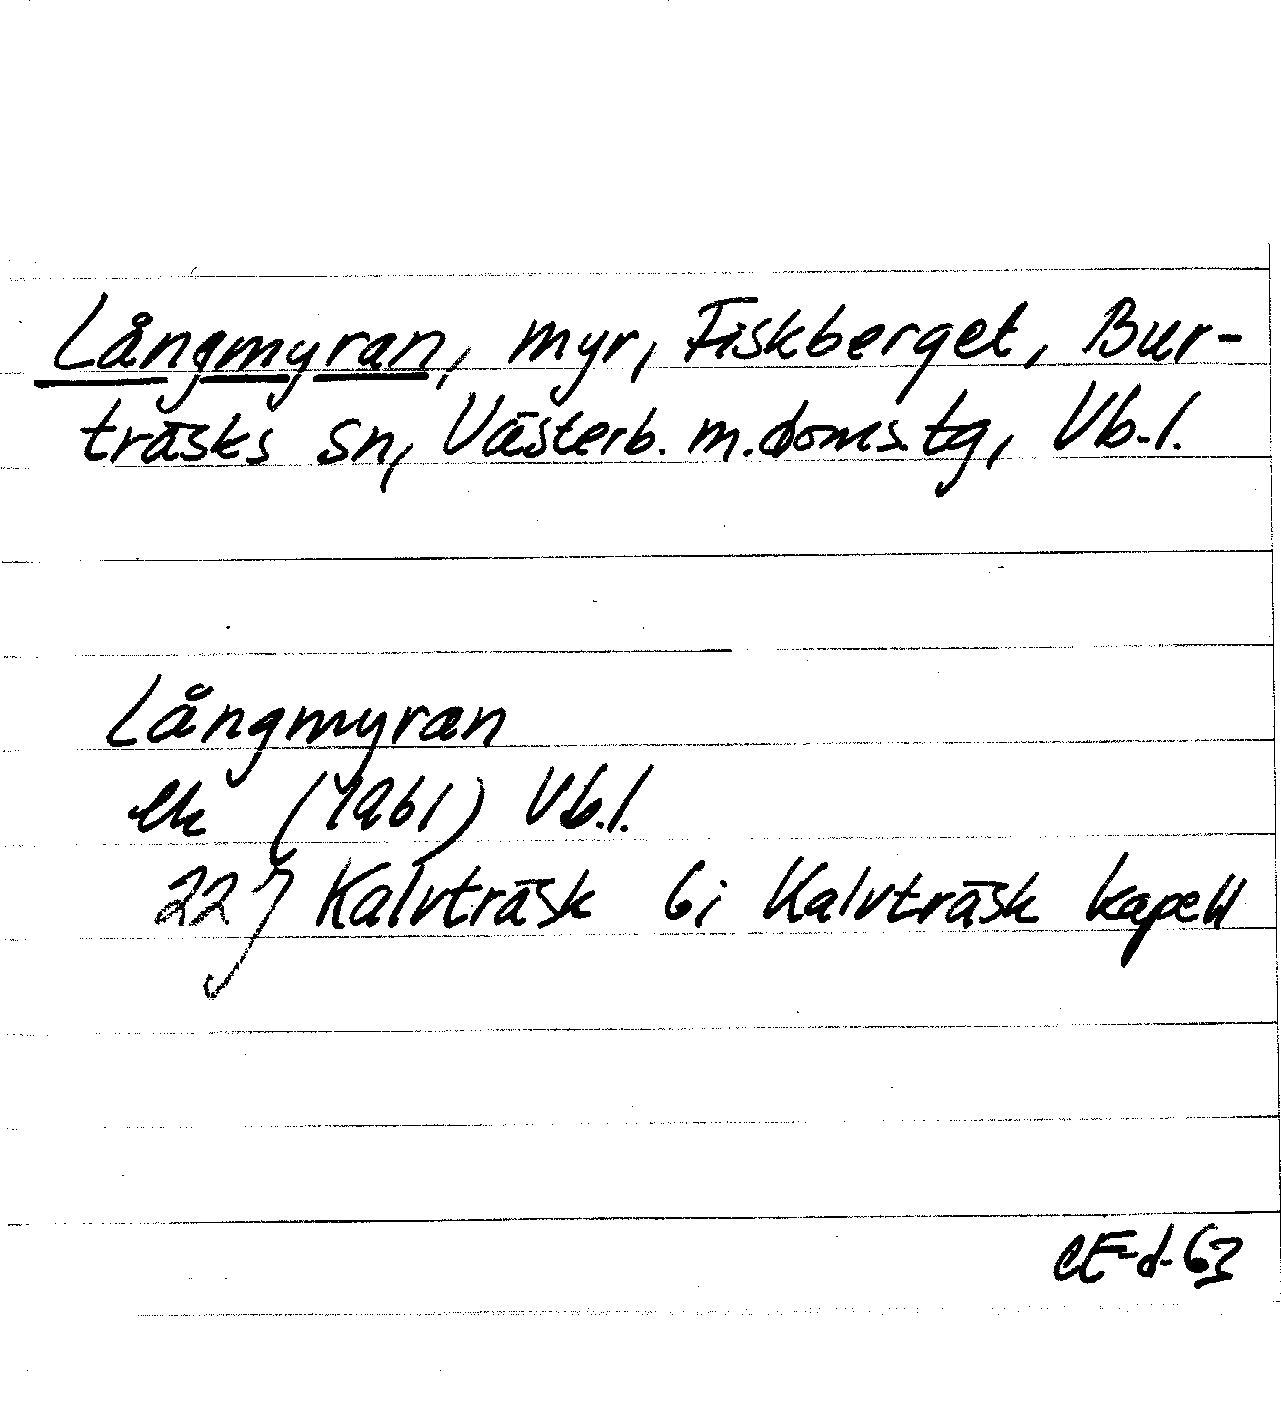 Långmyran, myr, Fiskberget, Bur-
träsks sn, Västerb. m. doms. tg, Vb.l.
Långmyran
ek (1961) Vb.l.
22J Kalvträsk 6i Kalvträsk kapell
CE-d-63